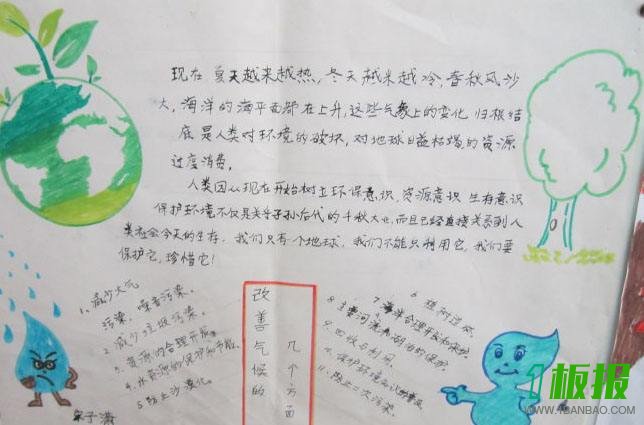 现在夏天越来越热,冬天越来越冷,春秋风沙
大,海洋的海平面都在上升,这些气象上的变化归根结
底是人类对环境的破坏,对地球日益枯竭的资源
过度消费。
人类因从现在开始树立环保意识,资源意识 生存意识
保护环境不仅是关乎子孙后代的千秋大业,而且已经直接关系到人
类社会今天的生存,我们只有一个地球,我们不能只利用它,我们要
保护它,珍惜它!
1、减少大气
污染,噪音污染。
2、减少垃圾污染。
3、资源的合理开发。
4、水资源的保护和节能。
5、防止沙漠化。
改善气候的
几个方面
6、
7、海洋合理开发和保护。
8、主要河流和湖泊的保护。
9、回收与利用。
10、保护环境
11、防止二次污染。
子涛
1板报
WWW.1BANBAO.COM